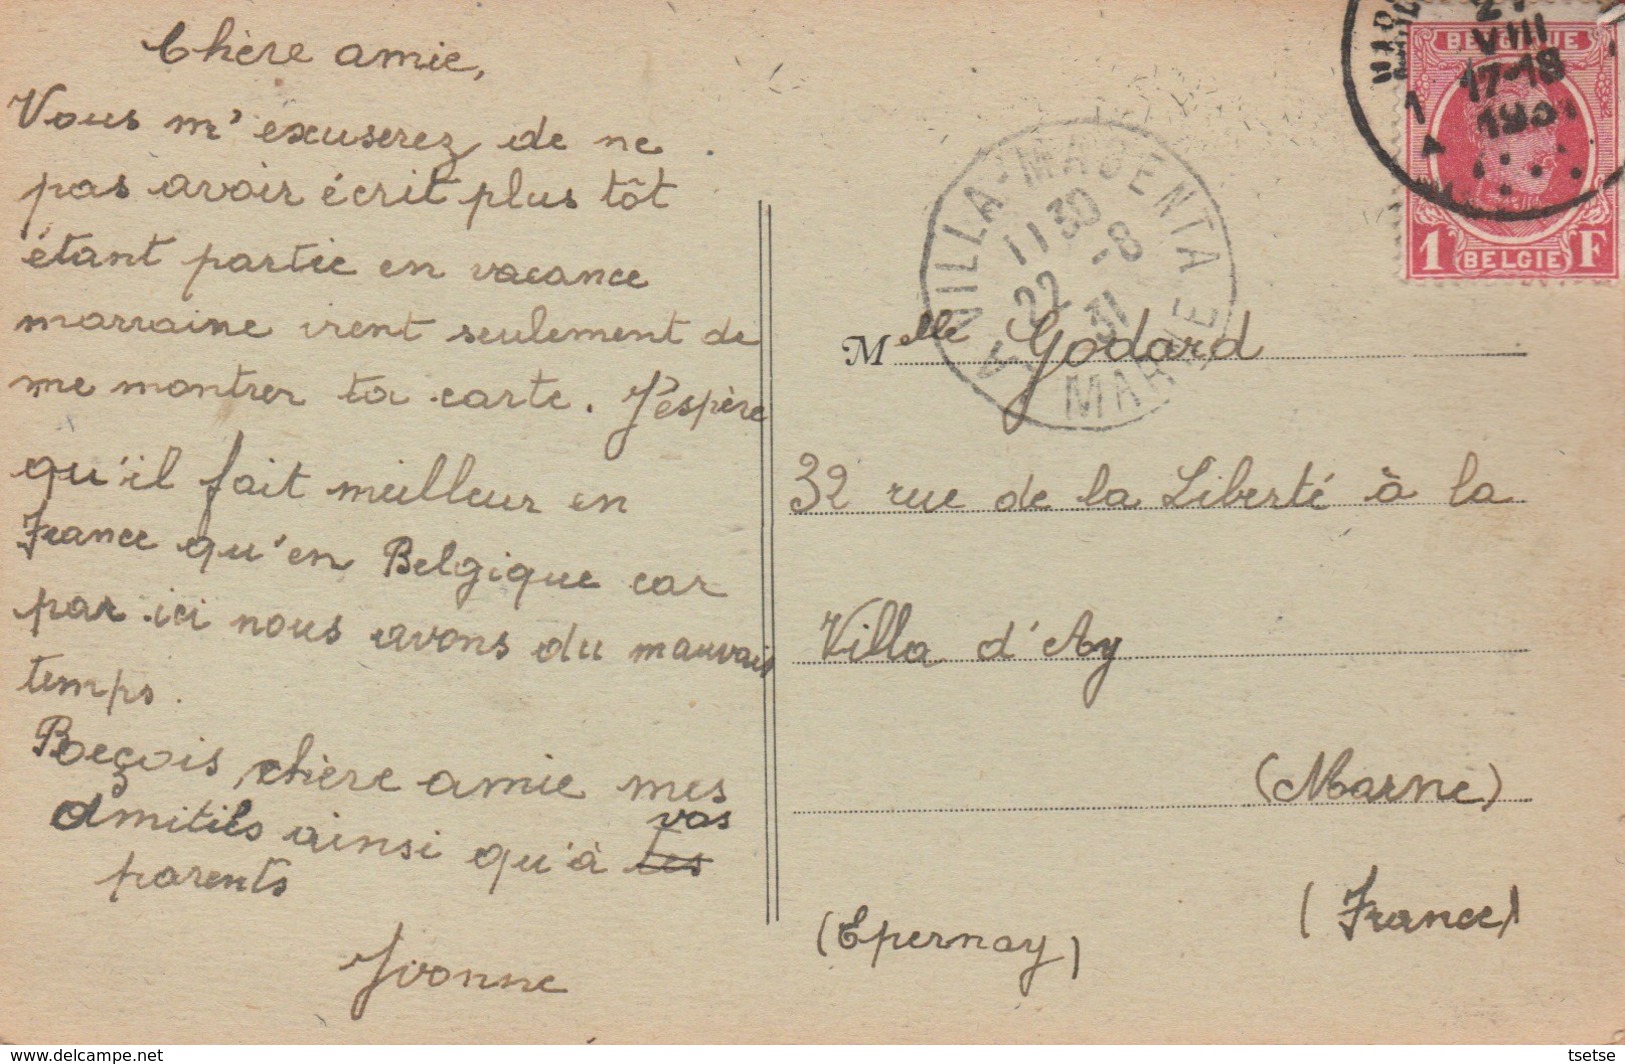 Chère amie,
Vous m'excuserez de ne
pas avoir écrit plus tôt
étant partie en vacance
marraine vient seulement de
me montrer ta carte. J'espère
qu'il fait meilleur en
France qu'en Belgique car
par ici nous avons du mauvais
temps.
Reçois chère amie mes
amitiés ainsi qu'à tes vos
parents
Yvonne
BELGIQUE
1 F
BELGIE
VIII
17-18
1931
VILLA-MAGENTA
11 30
22 -8
31
MARNE
Melle Godard
32 rue de la Liberté à la
Villa d'Ay
(Marne)
(France)
(Epernay)
tsetse